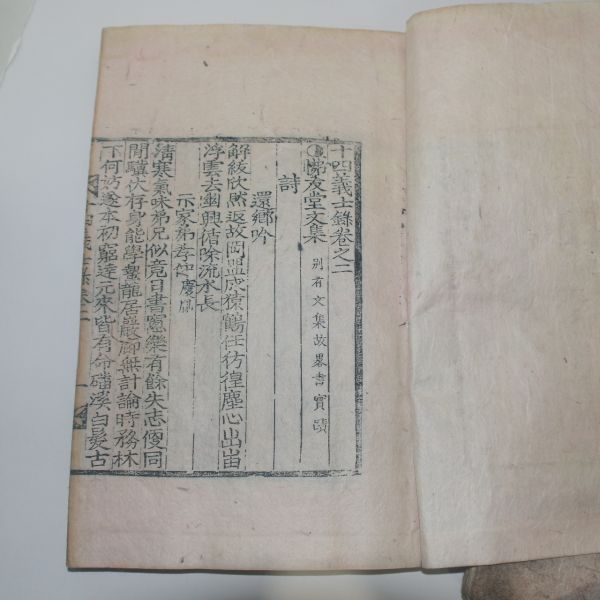 十四義士錄卷之二
悌友堂文集 別有文集故畧書實蹟
詩
還鄕吟
解紱欣然返故岡盟成猿鶴任彷徨塵心出岫
浮雲去幽興循除流水長
示家弟孝仲慶
淸寒氣味弟兄似竟日書窓樂有餘失志便同
閒驥伏存身能學蟄龍居巖廊無計論時務林
下何妨遂本初窮達元來皆有命磻溪白髮古